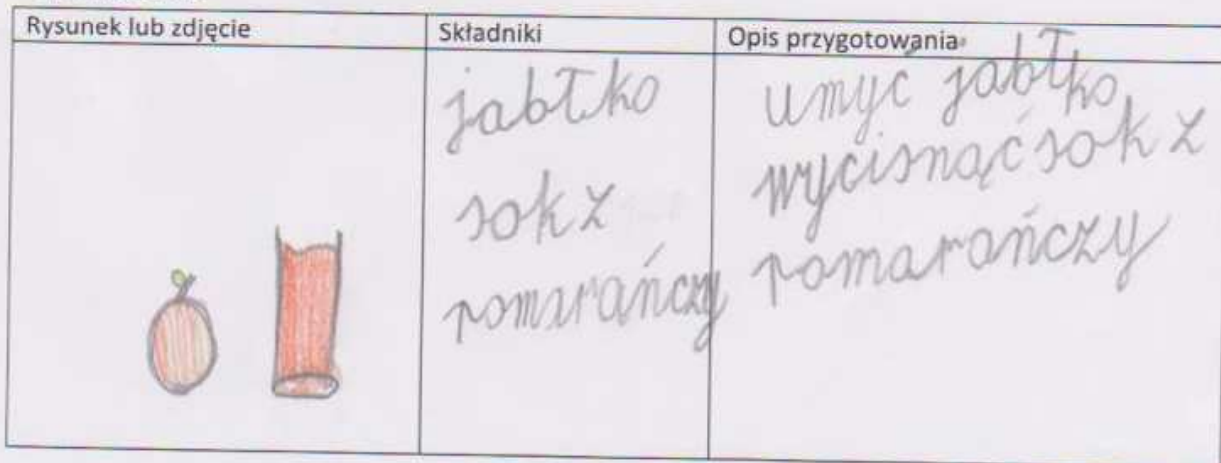 Rysunek lub zdjęcie
Składniki
Opis przygotowania
jabłko
sok z
pomarańczy
umyć jabłko
wycisnąć sok z
pomarańczy